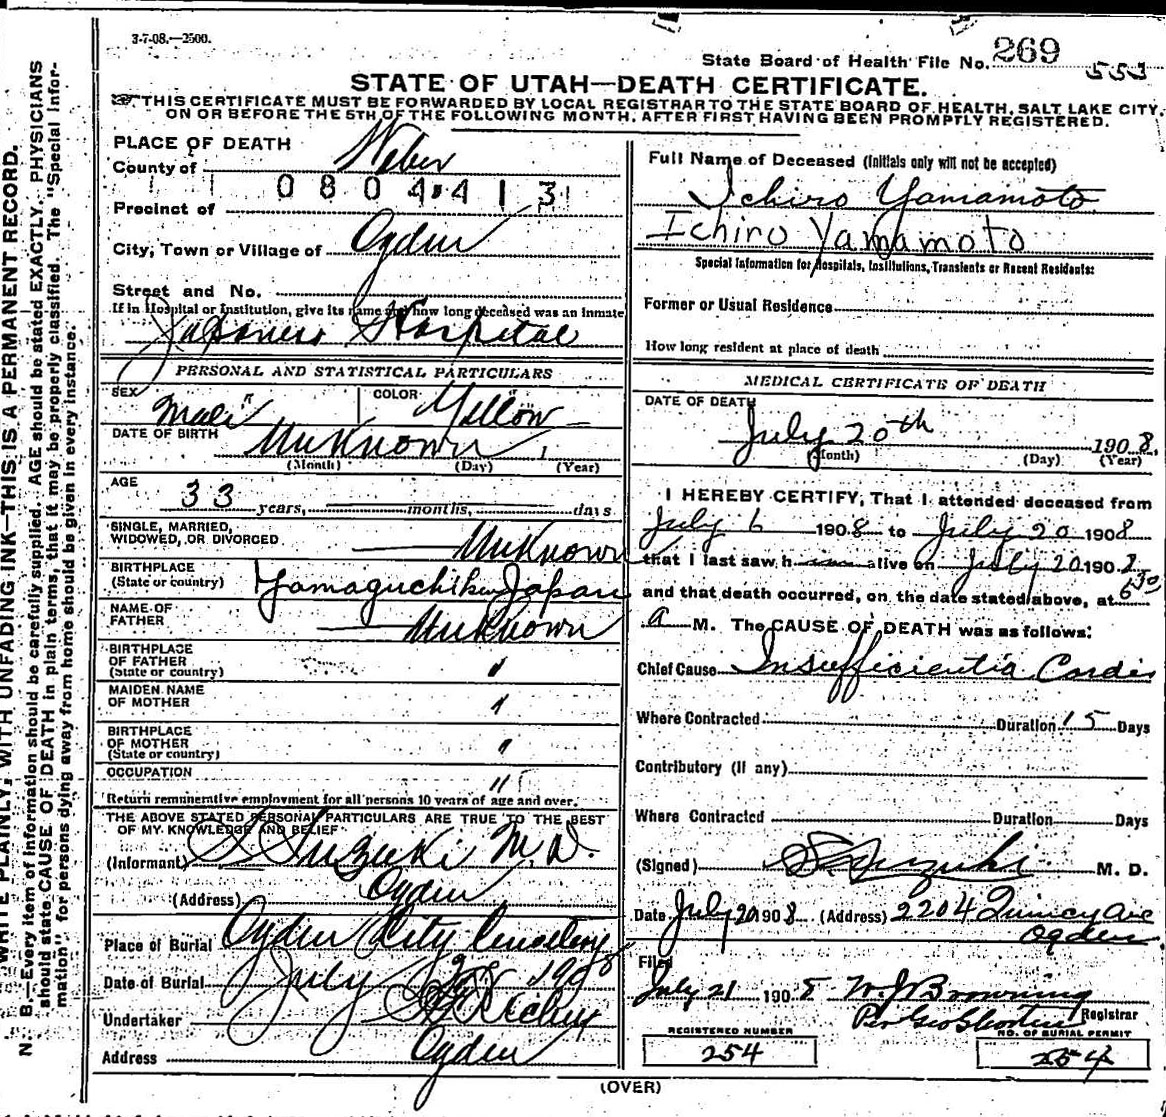 3-7-08.—2500.
State Board of Health File No. 269
553
STATE OF UTAH—DEATH CERTIFICATE.
THIS CERTIFICATE MUST BE FORWARDED BY LOCAL REGISTRAR TO THE STATE BOARD OF HEALTH, SALT LAKE CITY,
ON OR BEFORE THE 5TH OF THE FOLLOWING MONTH, AFTER FIRST HAVING BEEN PROMPTLY REGISTERED.
WRITE PLAINLY, WITH UNFADING INK—THIS IS A PERMANENT RECORD.
N. B.—Every item of information should be carefully supplied. AGE should be stated EXACTLY. PHYSICIANS
should state CAUSE OF DEATH in plain terms, that it may be properly classified. The "Special Infor-
mation" for persons dying away from home should be given in every instance.
PLACE OF DEATH
County of Weber
0804413
Precinct of
City, Town or Village of Ogden
Street and No.
If in Hospital or Institution, give its name and how long deceased was an inmate
Japanese Hospital
PERSONAL AND STATISTICAL PARTICULARS
SEX Male
COLOR Yellow
DATE OF BIRTH Unknown
(Month) (Day) (Year)
AGE
33 years, months, days
SINGLE, MARRIED,
WIDOWED, OR DIVORCED Unknown
BIRTHPLACE
(State or country) Yamaguchiken Japan
NAME OF
FATHER Unknown
BIRTHPLACE
OF FATHER
(State or country) "
MAIDEN NAME
OF MOTHER "
BIRTHPLACE
OF MOTHER
(State or country) "
OCCUPATION "
Return remunerative employment for all persons 10 years of age and over.
THE ABOVE STATED PERSONAL PARTICULARS ARE TRUE TO THE BEST
OF MY KNOWLEDGE AND BELIEF
(Informant) S Suzuki M.D.
(Address) Ogden
Place of Burial Ogden City Cemetery
Date of Burial July 1908
Undertaker
Address Ogden
Full Name of Deceased (Initials only will not be accepted)
Ichiro Yamamoto
Ichiro Yamamoto
Special Information for Hospitals, Institutions, Transients or Recent Residents:
Former or Usual Residence
How long resident at place of death
MEDICAL CERTIFICATE OF DEATH
DATE OF DEATH
July 20th 1908.
(Month) (Day) (Year)
I HEREBY CERTIFY, That I attended deceased from
July 6 1908 to July 20 1908
that I last saw h alive on July 20 1908
and that death occurred, on the date stated above, at 6 30
a M. The CAUSE OF DEATH was as follows:
Chief Cause Insufficientia Cordis
Where Contracted Duration 15 Days
Contributory (If any)
Where Contracted Duration Days
(Signed) S. Suzuki M. D.
Date July 20 1908 (Address) 2204 Quincy Ave
Ogden
Filed
July 21 1908 W J Browning
Registrar
Per Geo Shorten
REGISTERED NUMBER
254
NO. OF BURIAL PERMIT
254
(OVER)